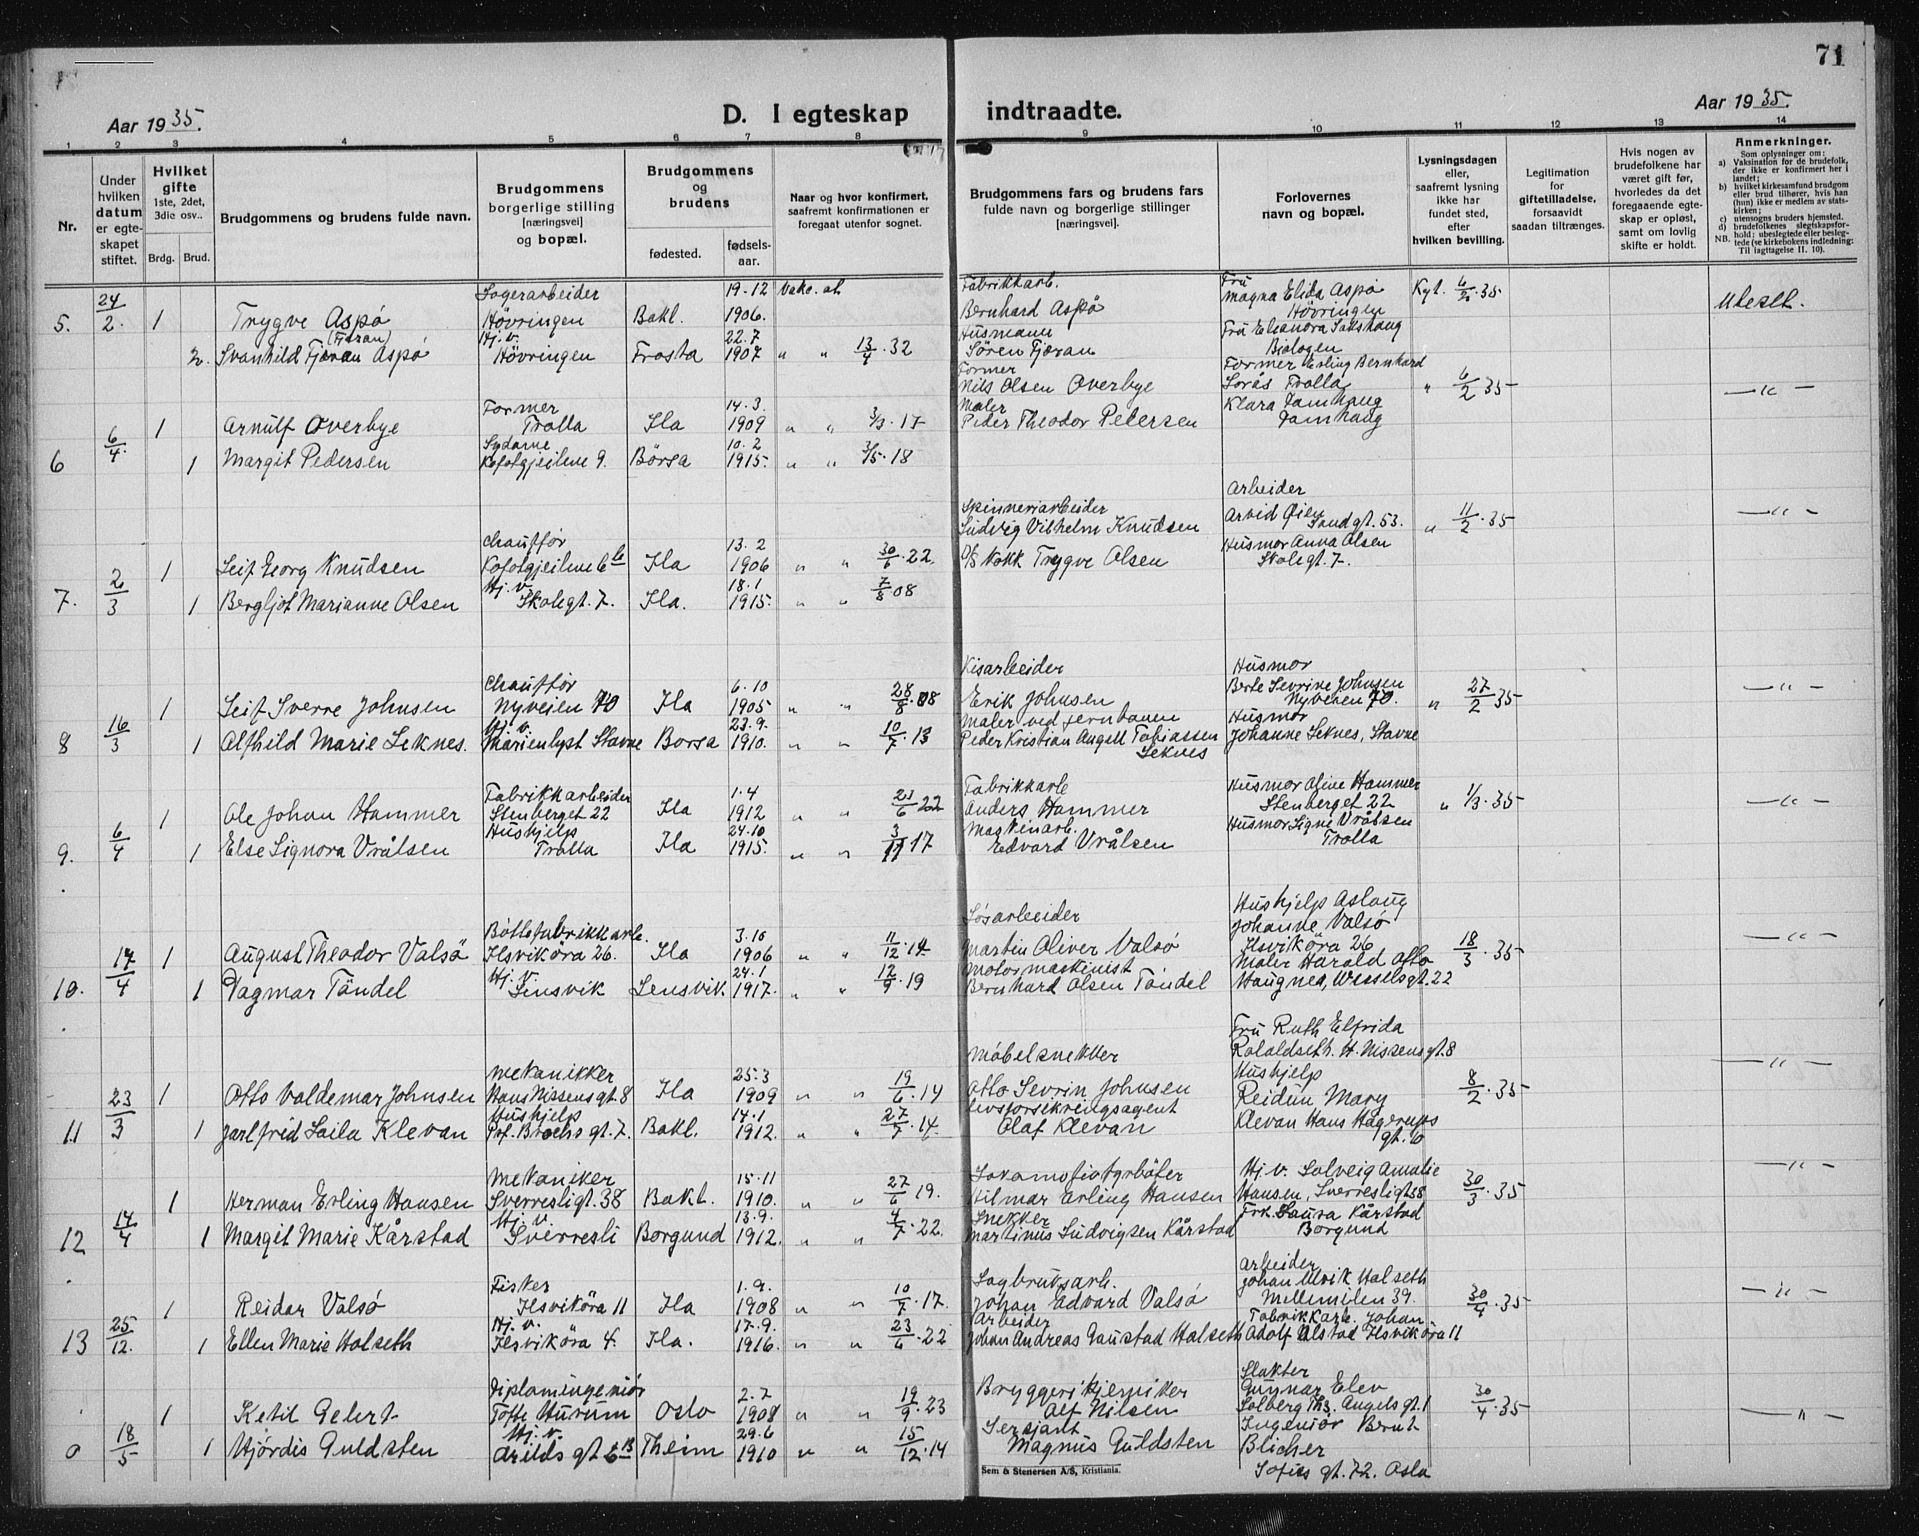 71
Aar 1935.
D. I egteskap indtraadte.
Aar 1935.
1 2 3 4 5 6 7 8 9 10 11 12 13 14
Nr.
Under hvilken datum er egteskapet stiftet.
Hvilket gifte 1ste, 2det, 3die osv..
Brdg. Brud.
Brudgommens og brudens fulde navn.
Brudgommens borgerlige stilling [næringsvei] og bopæl.
Brudgommens og brudens
fødested. fødsels-aar.
Naar og hvor konfirmert, saafremt konfirmationen er foregaat utenfor sognet.
Brudgommens fars og brudens fars fulde navn og borgerlige stillinger [næringsvei].
Forlovernes navn og bopæl.
Lysningsdagen eller, saafremt lysning ikke har fundet sted, efter hvilken bevilling.
Legitimation for giftetilladelse, forsaavidt saadan tiltrænges.
Hvis nogen av brudefolkene har været gift før, hvorledes da det foregaaende egteskap er opløst, samt om lovlig skifte er holdt.
Anmerkninger.
Som oplysninger om:
a) Vaksination for de brudefolk, der ikke er konfirmert her i landet;
b) hvilket kirkesamfund brudgom eller brud tilhører, hvis han (hun) ikke er medlem av statskirken;
c) utensogns bruders hjemsted.
d) brudefolkenes slegtskapsforhold; ubeslegtede eller beslegtede (se kirkebokens indledning:
NB. Til iagttagelse II. 10).
5. 24/2. 1 Trygve Aspø Lagerarbeider Høvringen Bakl. 19-12 1906. Vakc. at. Fabrikkarb. Bernhard Aspø Fru Magna Elida Aspø Høvringen Kyl. 6/2 35 Uteslt.
2. Svanhild Fjæran Aspø (Fjæran) Hj. v. Høvringen Frosta 22.7 1907 " " 13/4 32 Husmann Søren Fjæran Fru Eleonora Sakshaug Biologen
6 6/4. 1 Arnulf Overbye Former Trolla Ila 14.3. 1909 " " 3/3 17 Former Nils Olsen Overbye Former Erling Bernhard Sorås Trolla " 6/2 35 — " —
1 Margit Pedersen Sydame Kofotgjeilene 9. Börsa 10.2 1915. " " 3/5 18 Maler Peder Theodor Petersen Klara Jamhaug Jamhaug
7. 2/3 1 Leif Georg Knudsen Chauffør Kofotgjeilene 6 b Ila 13.2 1906 " " 30/6 22. Spinneriarbeider Ludvig Vilhelm Knudsen Arbeider Arvid Øien Sandgt. 53. " 11/2 35 — " —
1 Bergljot Marianne Olsen Hj. v. Skolegt. 7. Ila. 18.1 1915. " " 7/8 08 O/S Kokk Trygve Olsen Husmor Anna Olsen Skolegt. 7.
8 16/3 1 Leif Sverre Johnsen Chauffør Nyveien 70 Ila 6.10 1905 " " 28/8 08 Kisarbeider Erik Johnsen Husmor Berte Sevrine Johnsen Nyveien 70. " 27/2 35 — " —
1 Alfhild Marie Leknes. Hj. v. Marienlyst Stavne Börsa 23.9. 1910. " " 10/7 13 Maler ved jernbanen Peder Kristian Angell Tobiassen Leknes Husmor Johanne Leknes, Stavne
9. 6/4 1 Ole Johan Hammer Fabrikkarbeider Stenberget 22 Ila 1.4 1912 " " 23/6 22 Fabrikkarb Anders Hammer Husmor Oline Hammer Stenberget 22 " 1/3 35 — " —
1 Else Signora Vrålsen Hushjelp Trolla Ila 24.10 1915. " " 3/11 17 Maskinarb. Edvard Vrålsen Husmor Signe Vrålsen Trolla
10. 17/4 1 August Theodor Valsö Bøttefabrikkarb. Ilsviköra 26. Ila 3.10 1906 " " 11/12 14 Løsarbeider Martin Oliver Valsö Hushjelp Aslaug Johanne Valsö Ilsviköra 26 18/3 35 — " —
1 Dagmar Töndel Hj. v. Lensvik Lensvik. 24.1 1917. " " 12/9 19 Motormaskinist Bernhard Olsen Töndel Maler Harald Otto Haugnes, Wesselsgt. 22
11 23/3 1 Otto Valdemar Johnsen Mekanikker Hans Nissens gt. 8 Ila 25.3 1909 " " 19/6 14 Møbelsnekker Otto Sevrin Johnsen Fru Ruth Elfrida Rolaldseth. H. Nissens gt. 8 8/2 35 — " —
1 Jarlfrid Laila Klevan Hushjelp Prf. Brochs gt. 7. Bakl. 14.1 1912. " " 27/7 14. Livsforsikringsagent Olaf Klevan Hushjelp Reidun Mary Klevan Hans Hagerups gt. 6
12 14/4 1 Herman Erling Hansen Mekaniker Sverresligt. 38 Bakl. 15.11 1910. " " 27/6 19. Lokomotivfyrbøter Hilmar Erling Hansen Hj. v. Solveig Amalie Hansen, Sverresligt 38 30/3 35 — " —
1 Margit Marie Kårstad Hj. v. Sverresli Borgund 13.9. 1912. " " 4/7 22. Snekker Martinus Ludvigsen Kårstad Frk. Laura Kårstad Borgund
13 25/12. 1 Reidar Valsö Fisker Ilsviköra 11 Ila 1.9. 1908 " " 10/7 17. Sagbruksarb. Johan Edvard Valsö Arbeider Johan Ulvik Halseth Mellemilen 39. 30/4 35 — " —
1 Ellen Marie Halseth Hj. v. Ilsviköra 4. Ila. 17.9. 1916 " " 23/6 22 Arbeider Johan Andreas Gaustad Halseth Fabrikkarb. Johan Adolf Ulstad Ilsviköra 11
0 18/5 1 Ketil Gelert Diplomingeniör Tofte Hurum Oslo 2.7 1908 " " 19/9 23 Bryggerikjemiker Alf Nilsen Slakter Gunnar Elev Solberg Ths. Angels gt. 1 30/4 35 — " —
1 Hjördis Guldsten Hj. v. Arilds gt 6 B Theim 29.6 1910 " " 15/12 14 Sersjant Magnus Guldsten Ingeniör Bernt Blicher Sofies gt. 72. Oslo
Sem & Stenersen A/S, Kristiania.